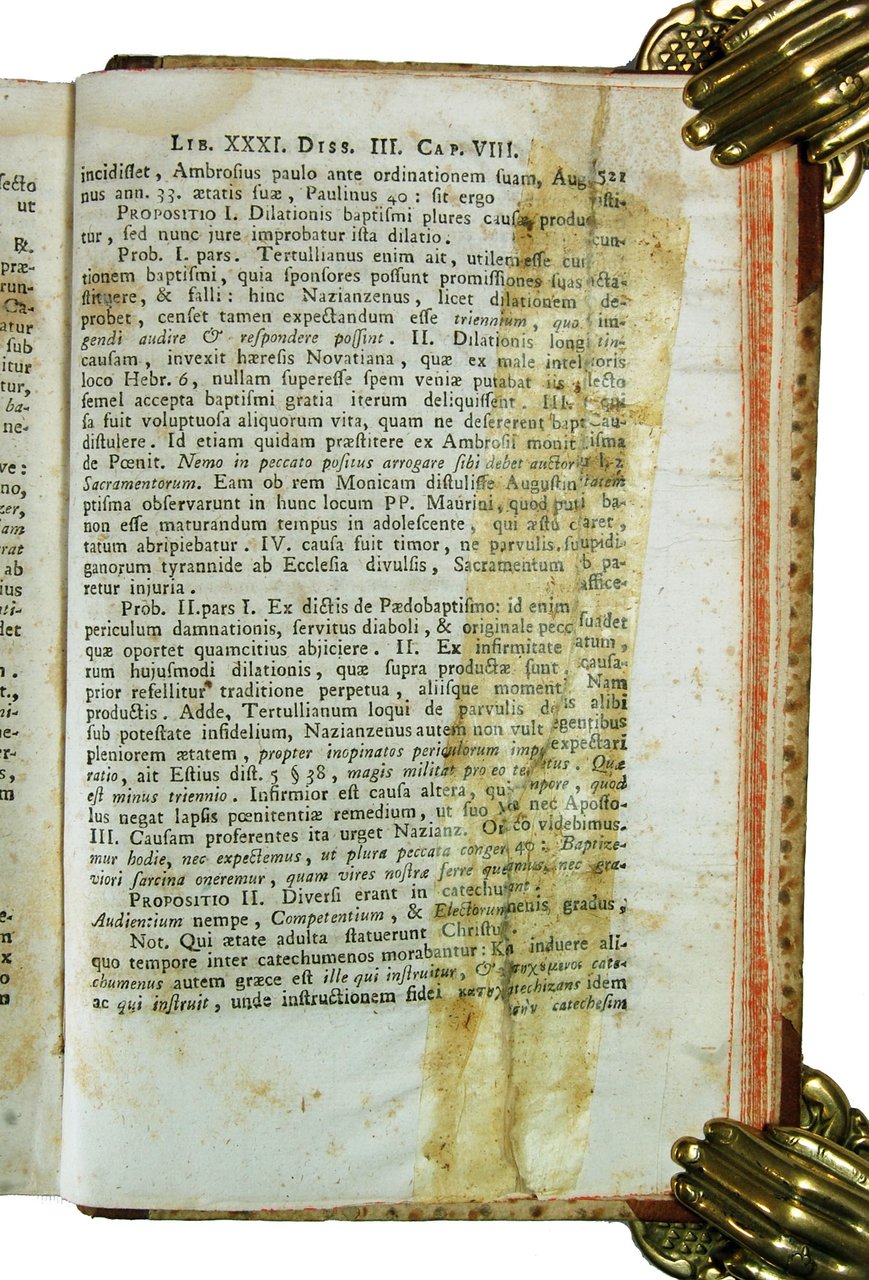 LIB. XXXI. DISS. III. CAP. VIII.
521
incidiſſet, Ambroſius paulo ante ordinationem ſuam, Aug
nus ann. 33. ætatis ſuæ, Paulinus 40: ſit ergo
PROPOSITIO I. Dilationis baptiſmi plures cauſæ produ
tur, ſed nunc jure improbatur iſta dilatio.
Prob. I. pars. Tertullianus enim ait, utilem eſſe
tionem baptiſmi, quia ſponſores poſſunt promiſſiones ſuas
ſtituere, & falli: hinc Nazianzenus, licet dilationem de-
probet, cenſet tamen expectandum eſſe triennium, quo
gendi audire & reſpondere poſſint. II. Dilationis
cauſam, invexit hæreſis Novatiana, quæ ex male
loco Hebr. 6, nullam ſupereſſe ſpem veniæ putabat iis
ſemel accepta baptiſmi gratia iterum deliquiſſent. III.
ſa fuit voluptuoſa aliquorum vita, quam ne deſererent
diſtulere. Id etiam quidam præſtitere ex Ambroſii monit
de Pœnit. Nemo in peccato poſitus arrogare ſibi debet
Sacramentorum. Eam ob rem Monicam diſtuliſſe Auguſtin
ptiſma obſervarunt in hunc locum PP. Maurini, quod
non eſſe maturandum tempus in adoleſcente, qui æſtu
tatum abripiebatur. IV. cauſa fuit timor, ne parvulis
ganorum tyrannide ab Eccleſia divulſis, Sacramentum
retur injuria.
Prob. II. pars I. Ex dictis de Pædobaptiſmo: id enim ſuadet
periculum damnationis, ſervitus diaboli, & originale pecc atum,
quæ oportet quamcitius abjicere. II. Ex infirmitate cauſa-
rum hujuſmodi dilationis, quæ ſupra productæ ſunt. Nam
prior refellitur traditione perpetua, aliiſque moment is alibi
productis. Adde, Tertullianum loqui de parvulis degentibus
ſub poteſtate infidelium, Nazianzenus autem non vult expectari
pleniorem ætatem, propter inopinatos periculorum impetus. Quæ
ratio, ait Eſtius diſt. 5 § 38, magis militat pro eo tempore, quod
eſt minus triennio. Infirmior eſt cauſa altera, nec Apoſto-
lus negat lapſis pœnitentiæ remedium, ut ſuo loco videbimus.
III. Cauſam proferentes ita urget Nazianz. Or. 40: Baptize-
mur hodie, nec expectemus, ut plura peccata nec gra-
viori ſarcina oneremur, quam vires noſtræ ferre queant.
PROPOSITIO II. Diverſi erant in catechumenis gradus,
Audientium nempe, Competentium, & Electorum.
Not. Qui ætate adulta ſtatuerunt Chriſtum induere ali-
quo tempore inter catechumenos morabantur: cate-
chumenus autem græce eſt ille qui inſtruitur, & catechizans idem
ac qui inſtruit, unde inſtructionem fidei catecheſim